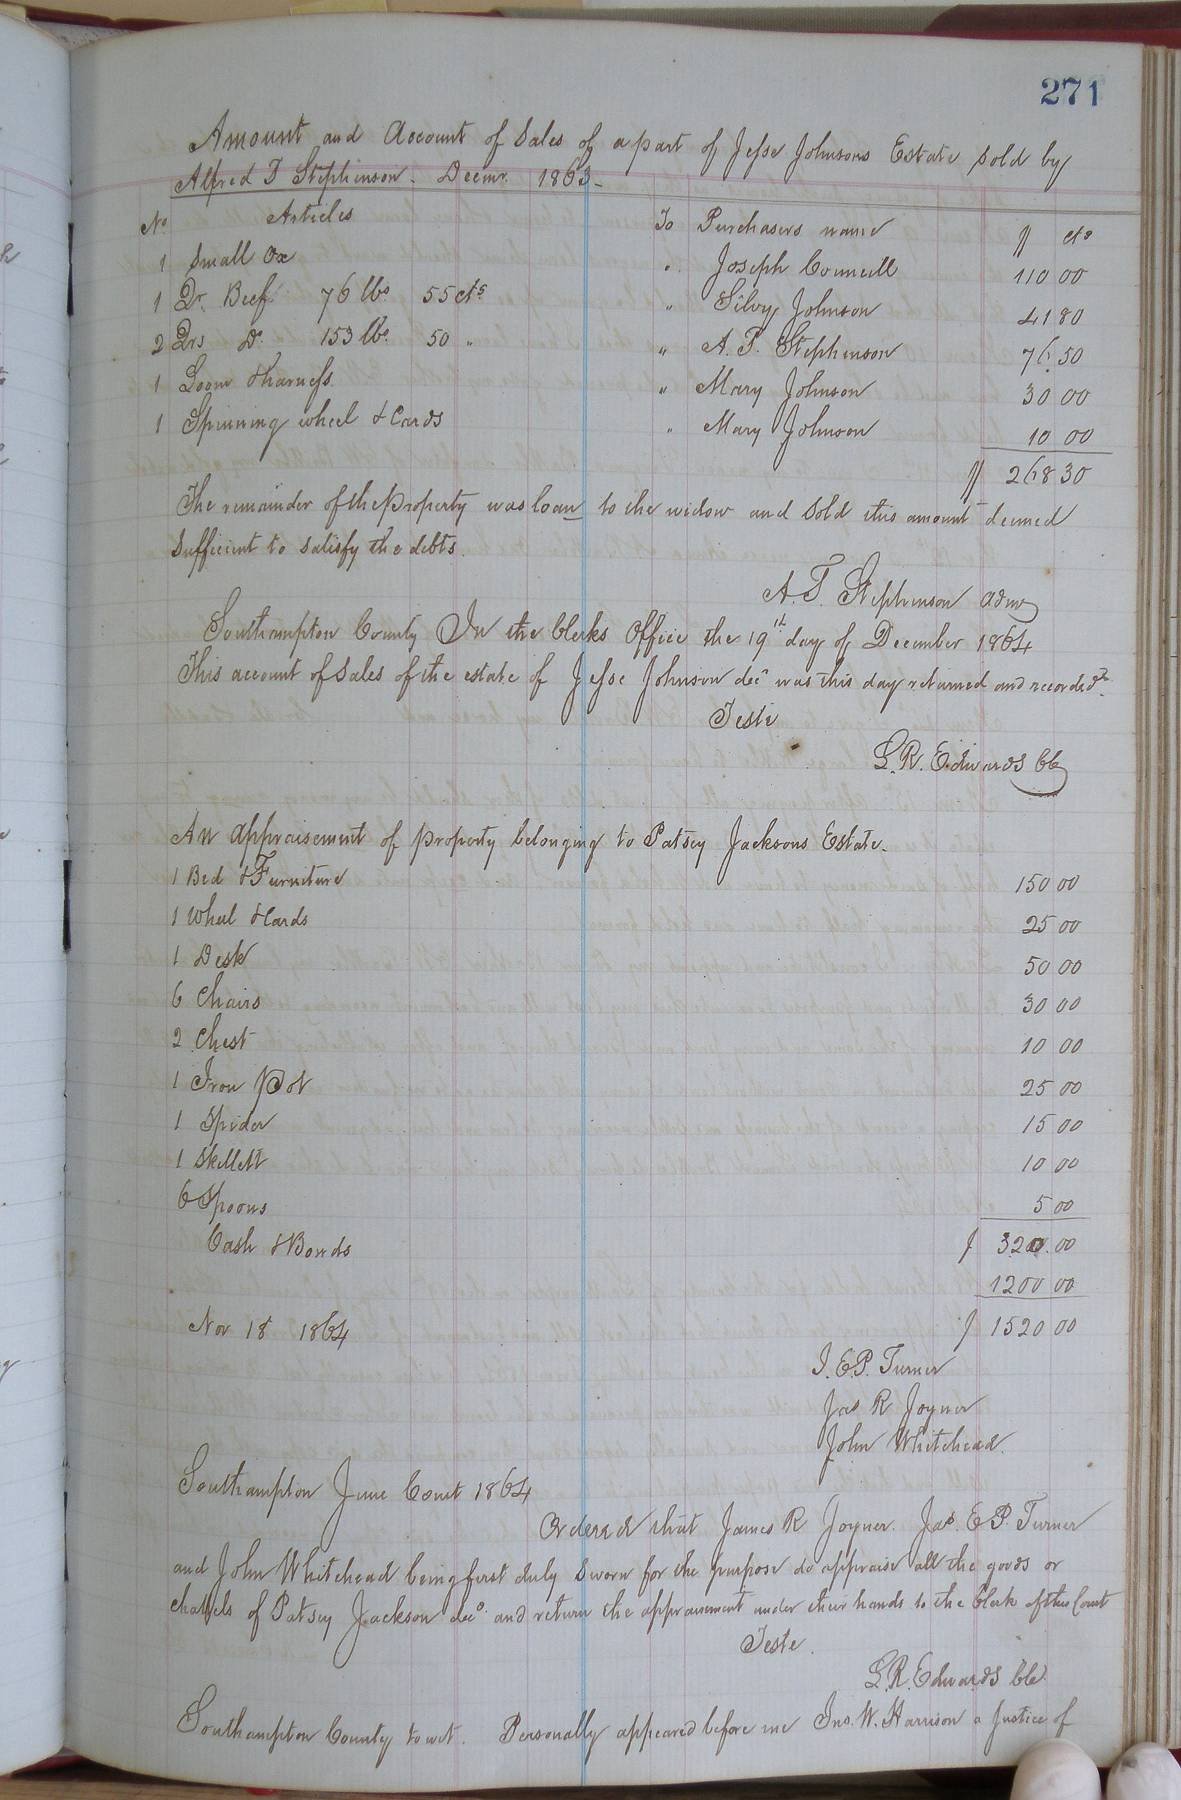 271
Amount and Account of Sales of a part of Jesse Johnsons Estate sold by
Alfred T Stephenson. Decmr. 1863.
No Articles To Purchasers name $ cts
1 Small Ox " Joseph Councill 110 00
1 Qr. Beef 76 lbs 55 cts " Silvy Johnson 41 80
2 Qrs Do. 153 lbs. 50 " " A. T. Stephenson 76 50
1 Loom & harness " Mary Johnson 30 00
1 Spinning wheel & Cards " Mary Johnson 10 00
$ 268 30
The remainder of the Property was loan to the widow and sold this amount deemed
Sufficient to satisfy the debts.
A. T. Stephenson admr
Southampton County In the Clerks Office the 19th day of December 1864
This account of Sales of the estate of Jesse Johnson decd was this day returned and recorded
Teste
L. R. Edwards Clk
An Appraisement of property belonging to Patsey Jacksons Estate.
1 Bed & Furniture 150 00
1 Wheel & Cards 25 00
1 Desk 50 00
6 Chairs 30 00
2 Chest 10 00
1 Iron Pot 25 00
1 Spider 15 00
1 Skellett 10 00
6 Spoons 5 00
Cash & Bonds $ 320.00
1200 00
Nov 18 1864 $ 1520 00
J. E. P. Turner
Jas R Joyner
John Whitehead.
Southampton June Court 1864
Ordered that James R Joyner. Jas. E P. Turner
and John Whitehead being first duly Sworn for the purpose do appraise all the goods or
chattels of Patsey Jackson decd. and return the appraisement under their hands to the Clerk of this Court
Teste.
L. R. Edwards Clk
Southampton County to wit. Personally appeared before me Jno. W. Harrison a Justice of